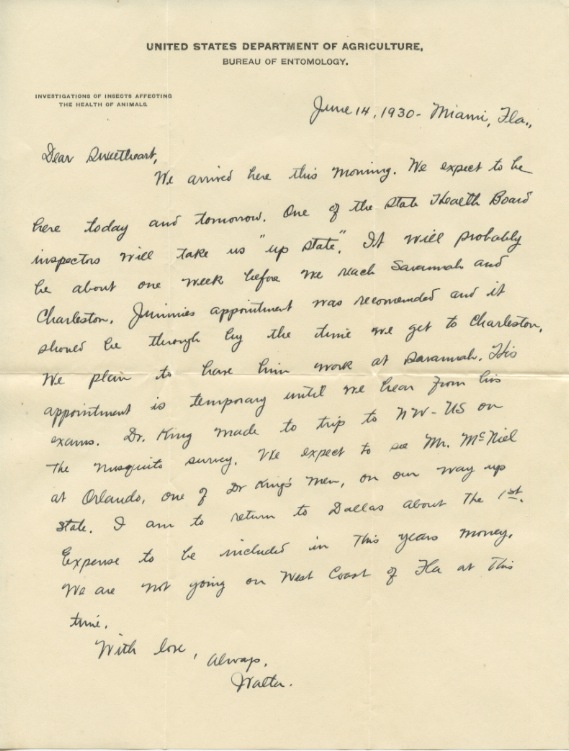 UNITED STATES DEPARTMENT OF AGRICULTURE,
BUREAU OF ENTOMOLOGY.
INVESTIGATIONS OF INSECTS AFFECTING
THE HEALTH OF ANIMALS
June 14, 1930 - Miami, Fla.,
Dear Sweetheart,
We arrived here this morning. We expect to be
here today and tomorrow. One of the State Health Board
inspectors will take us "up state". It will probably
be about one week before we reach Savannah and
Charleston. Jimmies appointment was recomended and it
should be through by the time we get to Charleston.
We plan to have him work at Savannah. His
appointment is temporary until we hear from his
exams. Dr. King made to trip to NW-US on
the mosquito survey. We expect to see Mr. McNiel
at Orlando, one of Dr King's men, on our way up
state. I am to return to Dallas about the 1st.
Expense to be included in this years money.
We are not going on West Coast of Fla at this
time.
With love,
Always,
Walter.